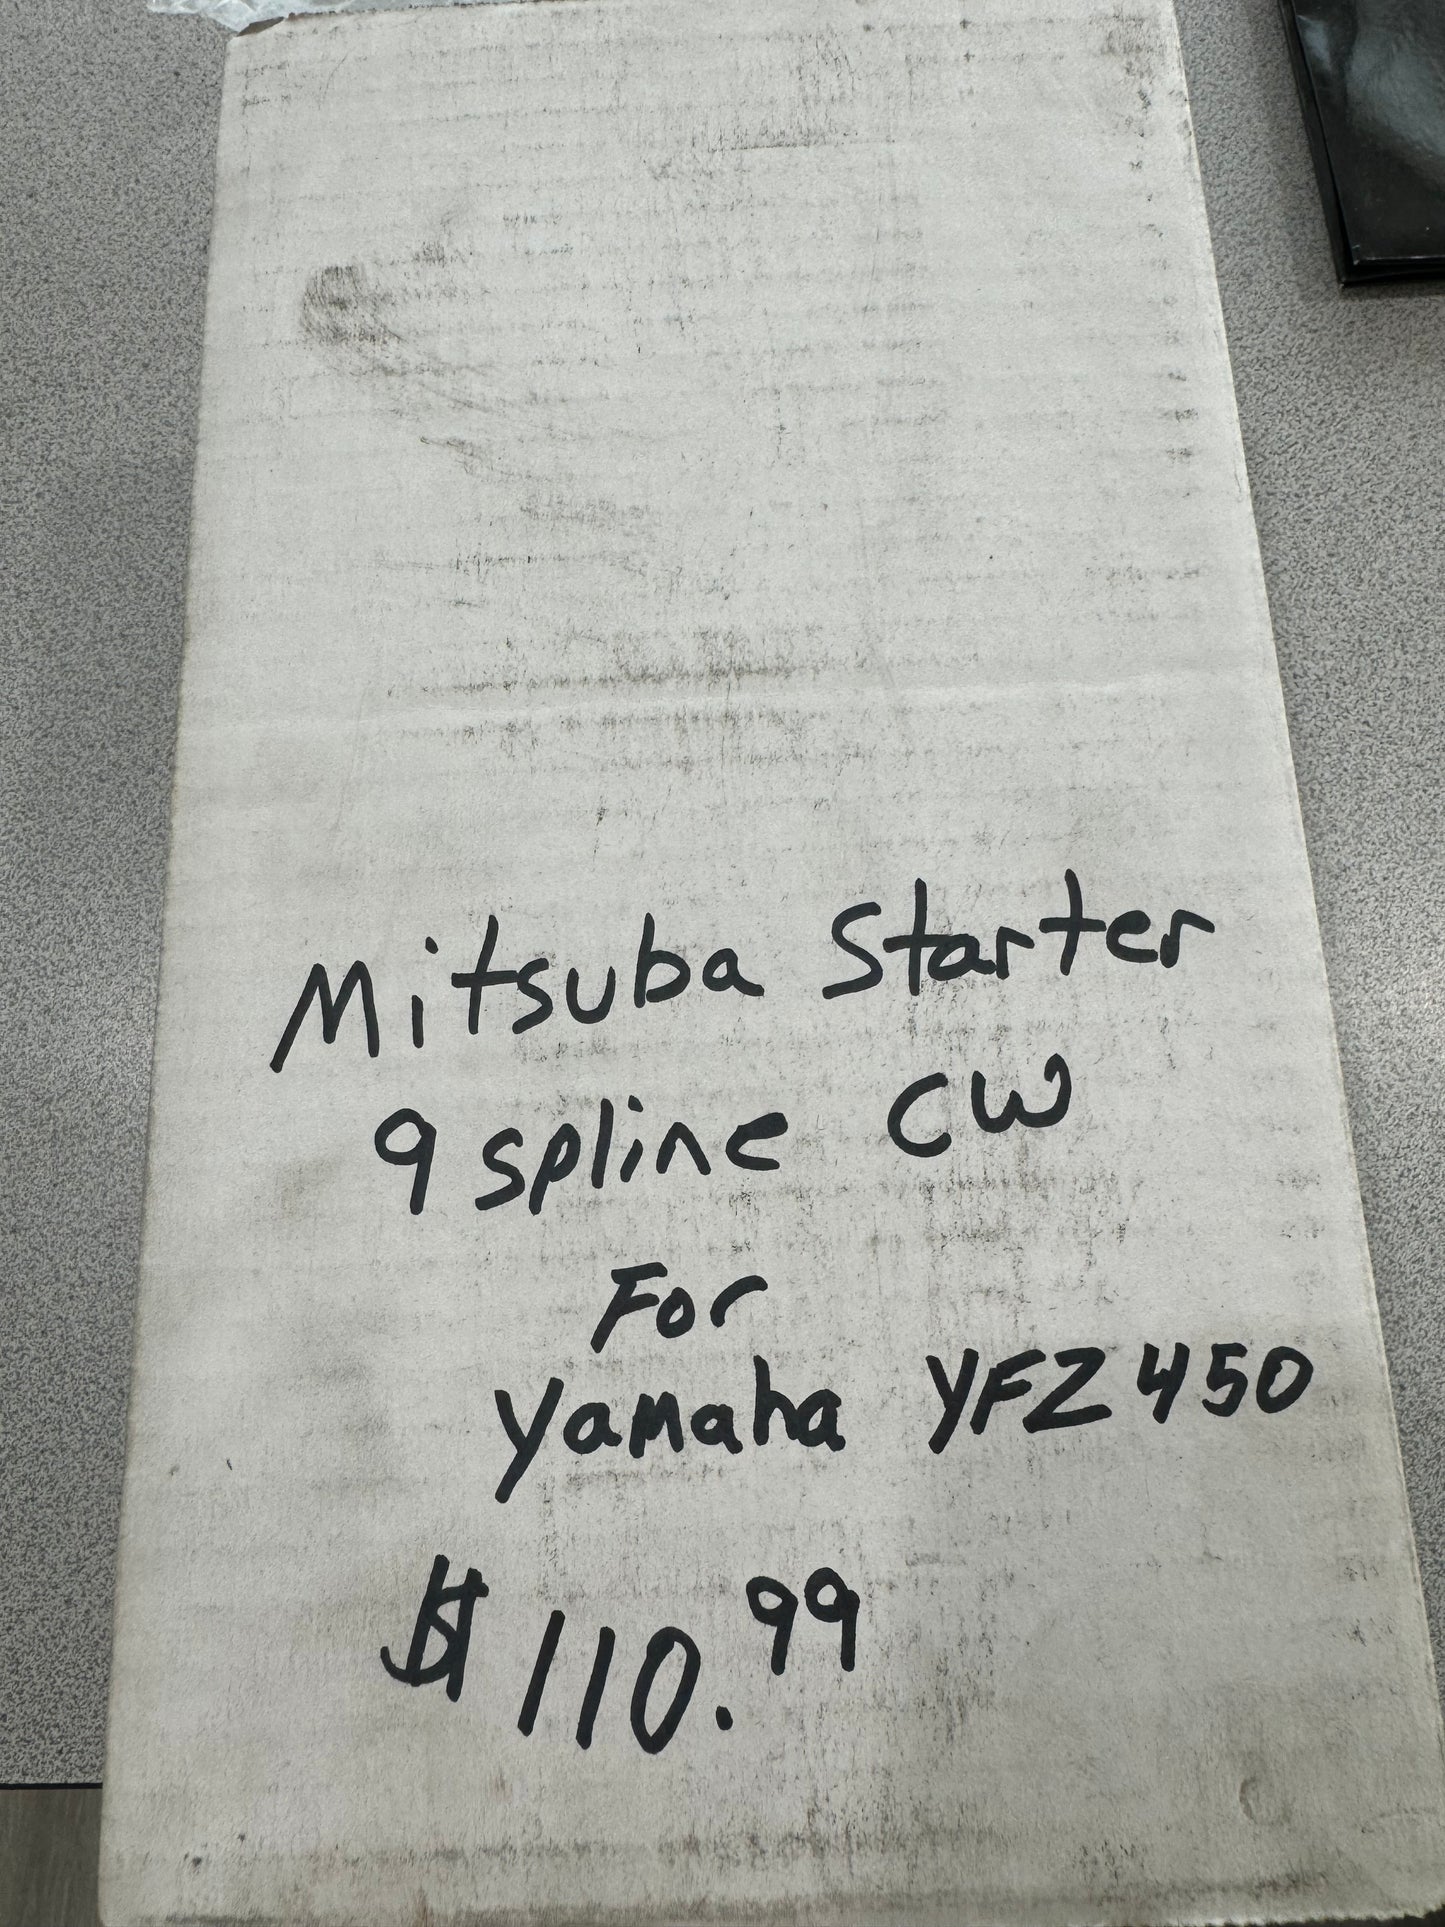 Mitsuba Starter
9 spline CW
For
Yamaha YFZ450
$110.99